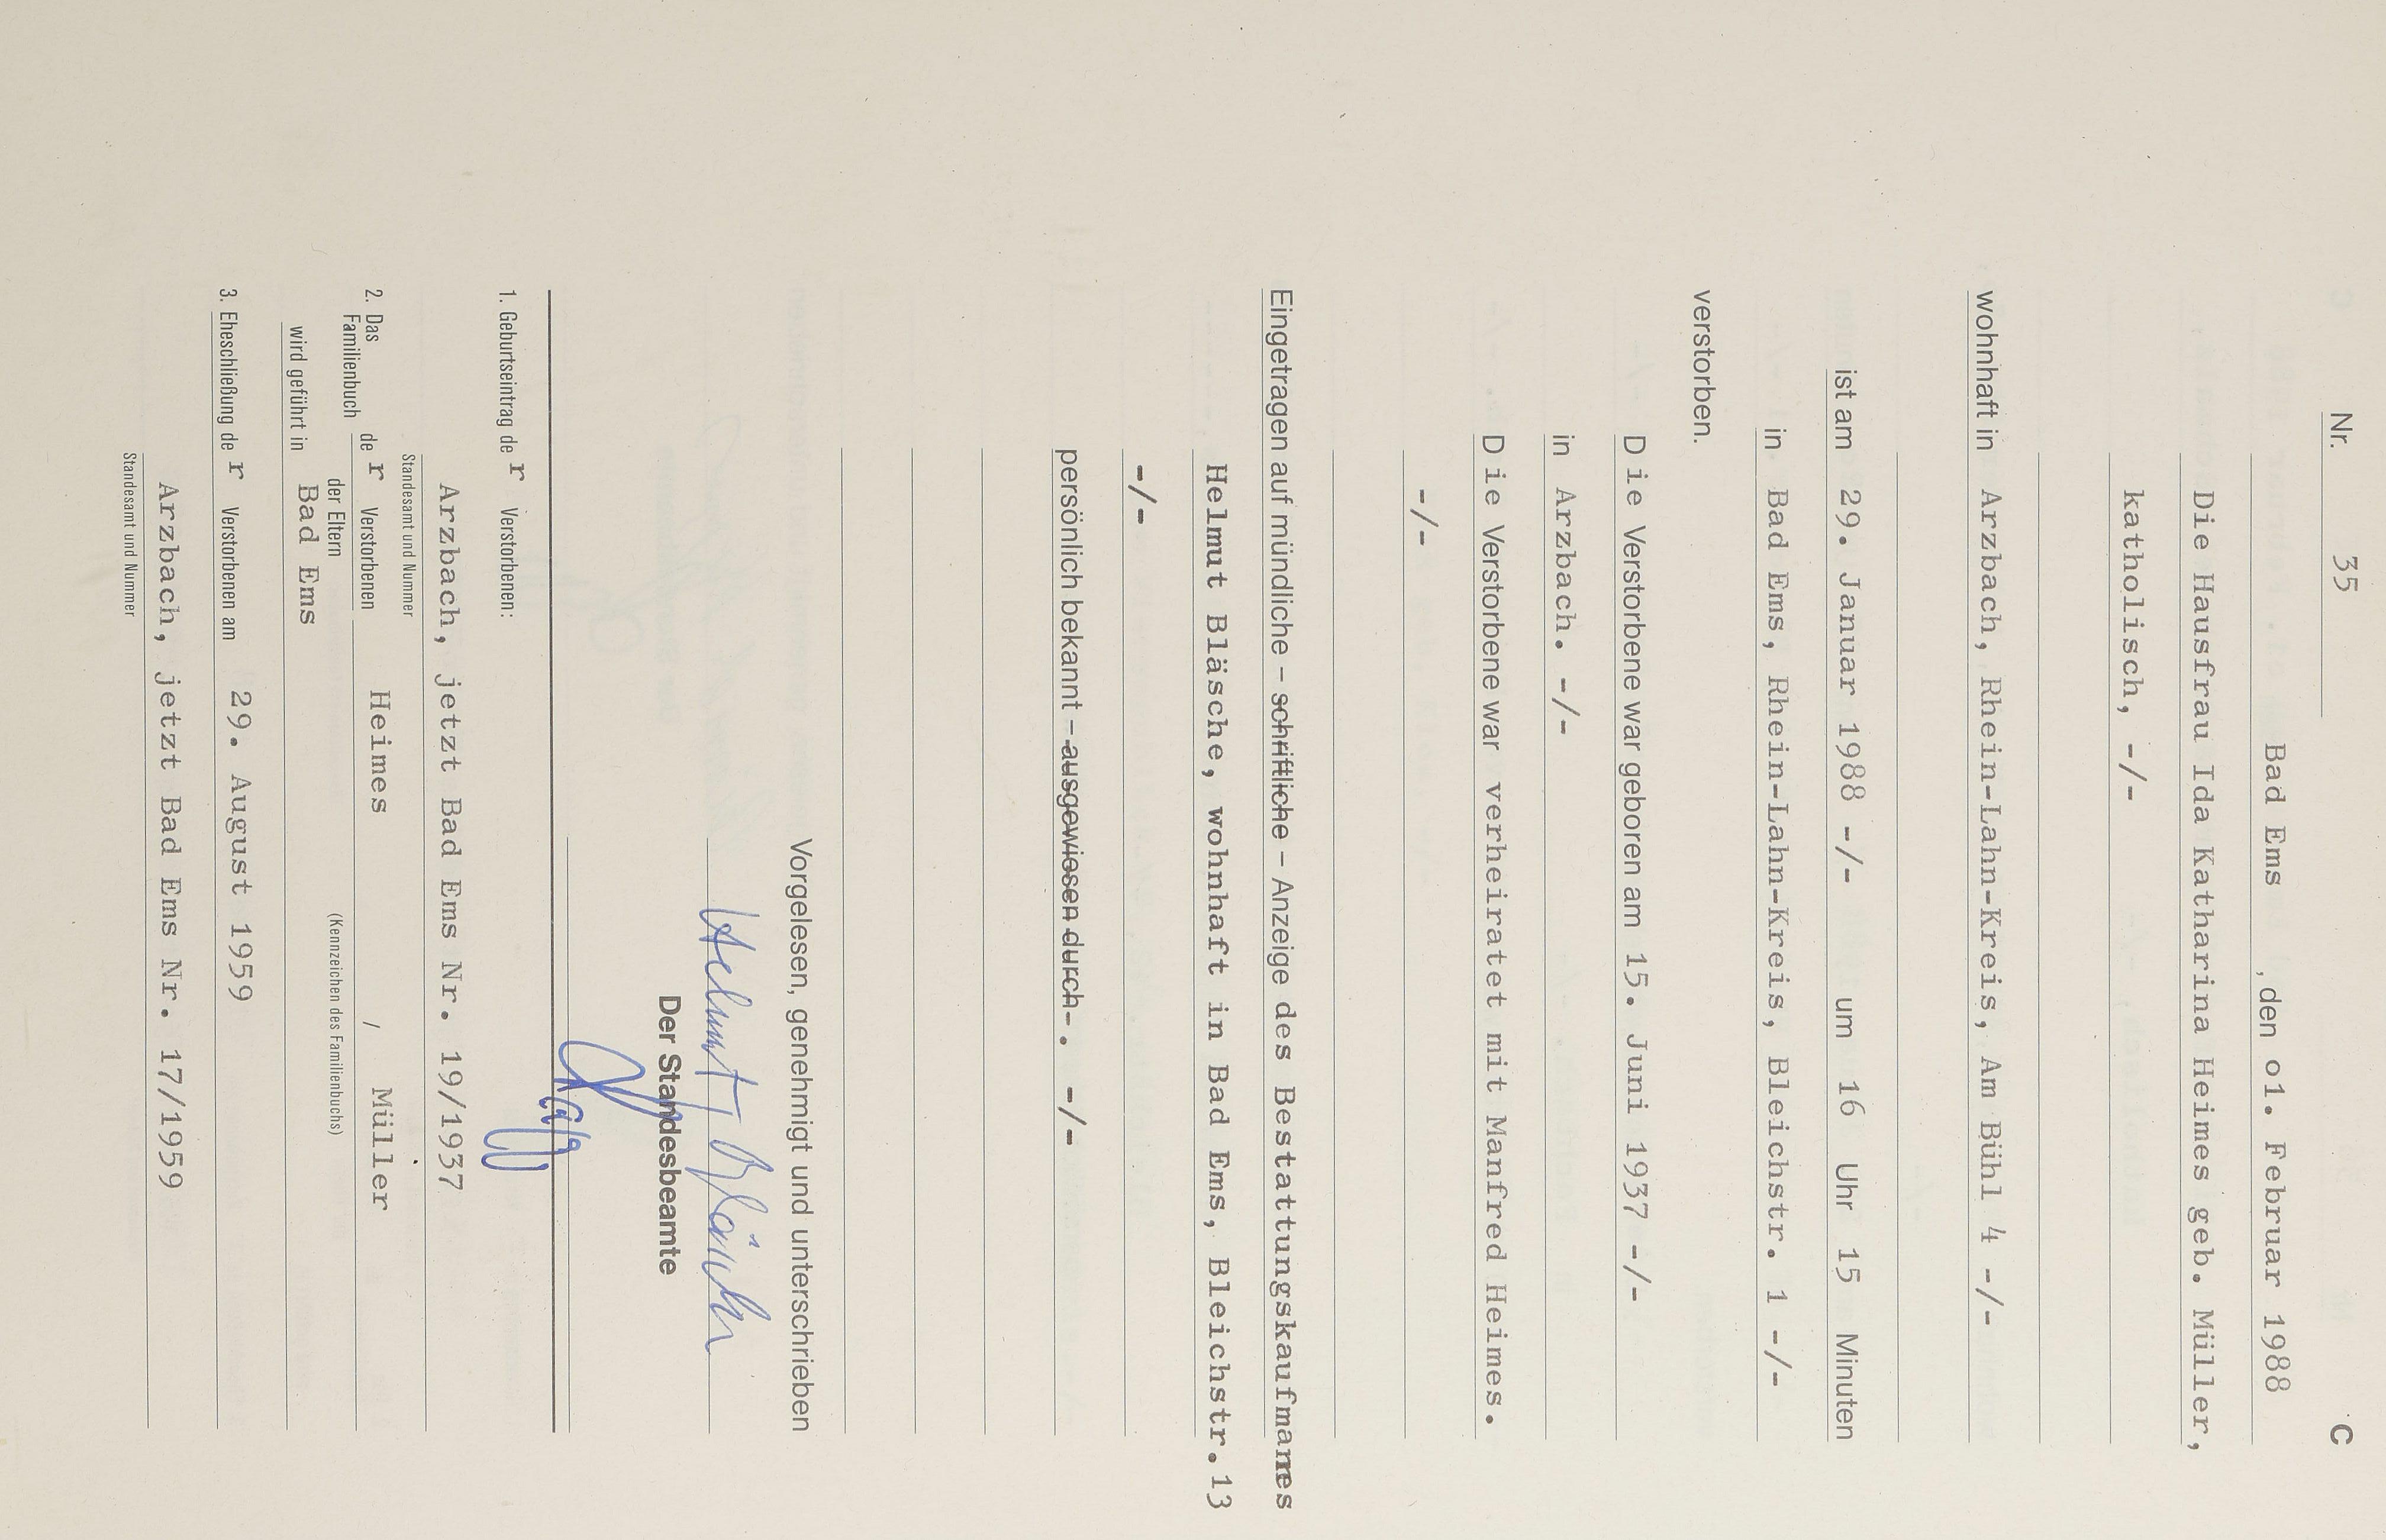 C
Nr. 35
Bad Ems, den o1. Februar 1988
Die Hausfrau Ida Katharina Heimes geb. Müller,
katholisch, -/-
wohnhaft in Arzbach, Rhein-Lahn-Kreis, Am Bühl 4 -/-
ist am 29. Januar 1988 -/- um 16 Uhr 15 Minuten
in Bad Ems, Rhein-Lahn-Kreis, Bleichstr. 1 -/-
verstorben.
Die Verstorbene war geboren am 15. Juni 1937 -/-
in Arzbach. -/-
Die Verstorbene war verheiratet mit Manfred Heimes.
-/-
Eingetragen auf mündliche – schriftliche – Anzeige des Bestattungskaufmannes
Helmut Bläsche, wohnhaft in Bad Ems, Bleichstr.13
-/-
persönlich bekannt – ausgewiesen durch-. -/-
Vorgelesen, genehmigt und unterschrieben
Helmut Bläsche
Der Standesbeamte
1. Geburtseintrag de r Verstorbenen:
Arzbach, jetzt Bad Ems Nr. 19/1937
Standesamt und Nummer
2. Das Familienbuch de r Verstorbenen Heimes / Müller
der Eltern (Kennzeichen des Familienbuchs)
wird geführt in Bad Ems
3. Eheschließung de r Verstorbenen am 29. August 1959
Arzbach, jetzt Bad Ems Nr. 17/1959
Standesamt und Nummer